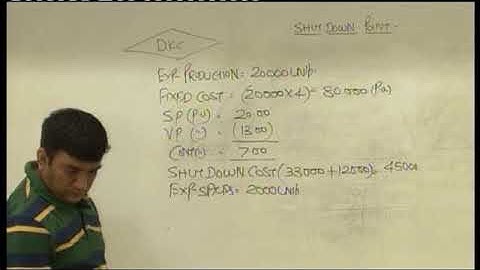 SHUT DOWN POINT -
DKC
EXP. PRODUCTION = 20000 UNITS
FIXED COST = (20000×4) = 80.000 (PA)
SP (PU) = 20.00
VP (") = (13.00)
CONT(") = 7.00
SHUT DOWN COST (33000 + 12000) = 45000
EXP SALES = 2000 UNITS